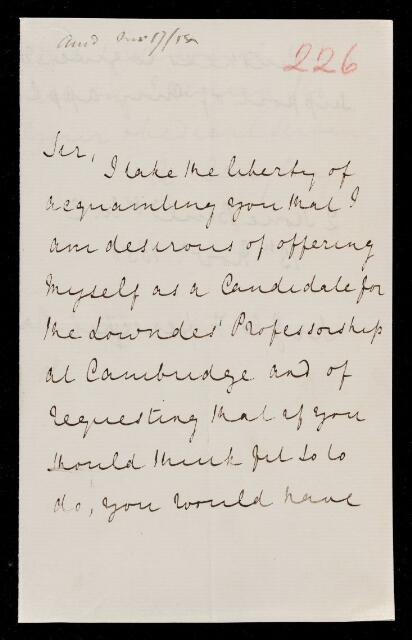 226
Sir,
I take the liberty of
acquainting you that I
am desirous of offering
Myself as a Candidate for
the Lowndes' Professorship
at Cambridge and of
requesting that if you
should think fit so to
do, you would have